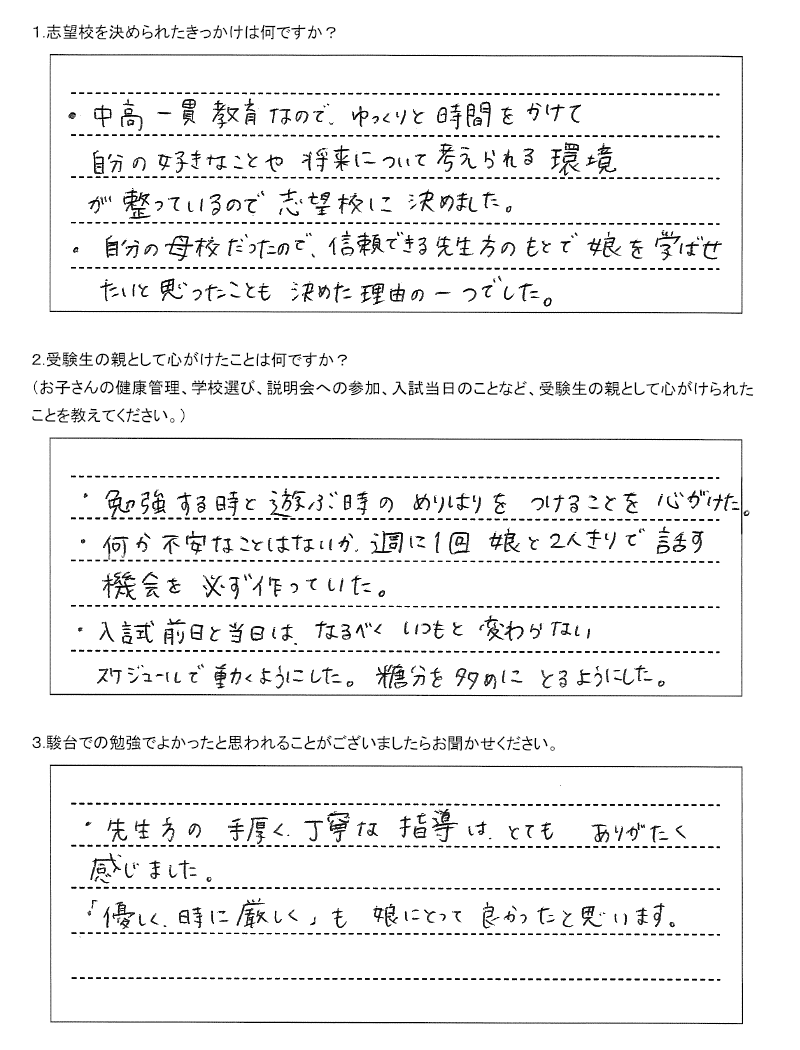 1.志望校を決められたきっかけは何ですか？
・中高一貫教育なので、ゆっくりと時間をかけて
自分の好きなことや将来について考えられる環境
が整っているので志望校に決めました。
・自分の母校だったので、信頼できる先生方のもとで娘を学ばせ
たいと思ったことも決めた理由の一つでした。
2.受験生の親として心がけたことは何ですか？
（お子さんの健康管理、学校選び、説明会への参加、入試当日のことなど、受験生の親として心がけられた
ことを教えてください。）
・勉強する時と遊ぶ時のめりはりをつけることを心がけた。
・何か不安なことはないか、週に1回娘と2人きりで話す
機会を必ず作っていた。
・入試前日と当日は、なるべくいつもと変わらない
スケジュールで動くようにした。糖分を多めにとるようにした。
3.駿台での勉強でよかったと思われることがございましたらお聞かせください。
・先生方の手厚く、丁寧な指導は、とてもありがたく
感じました。
「優しく、時に厳しく」も娘にとって良かったと思います。